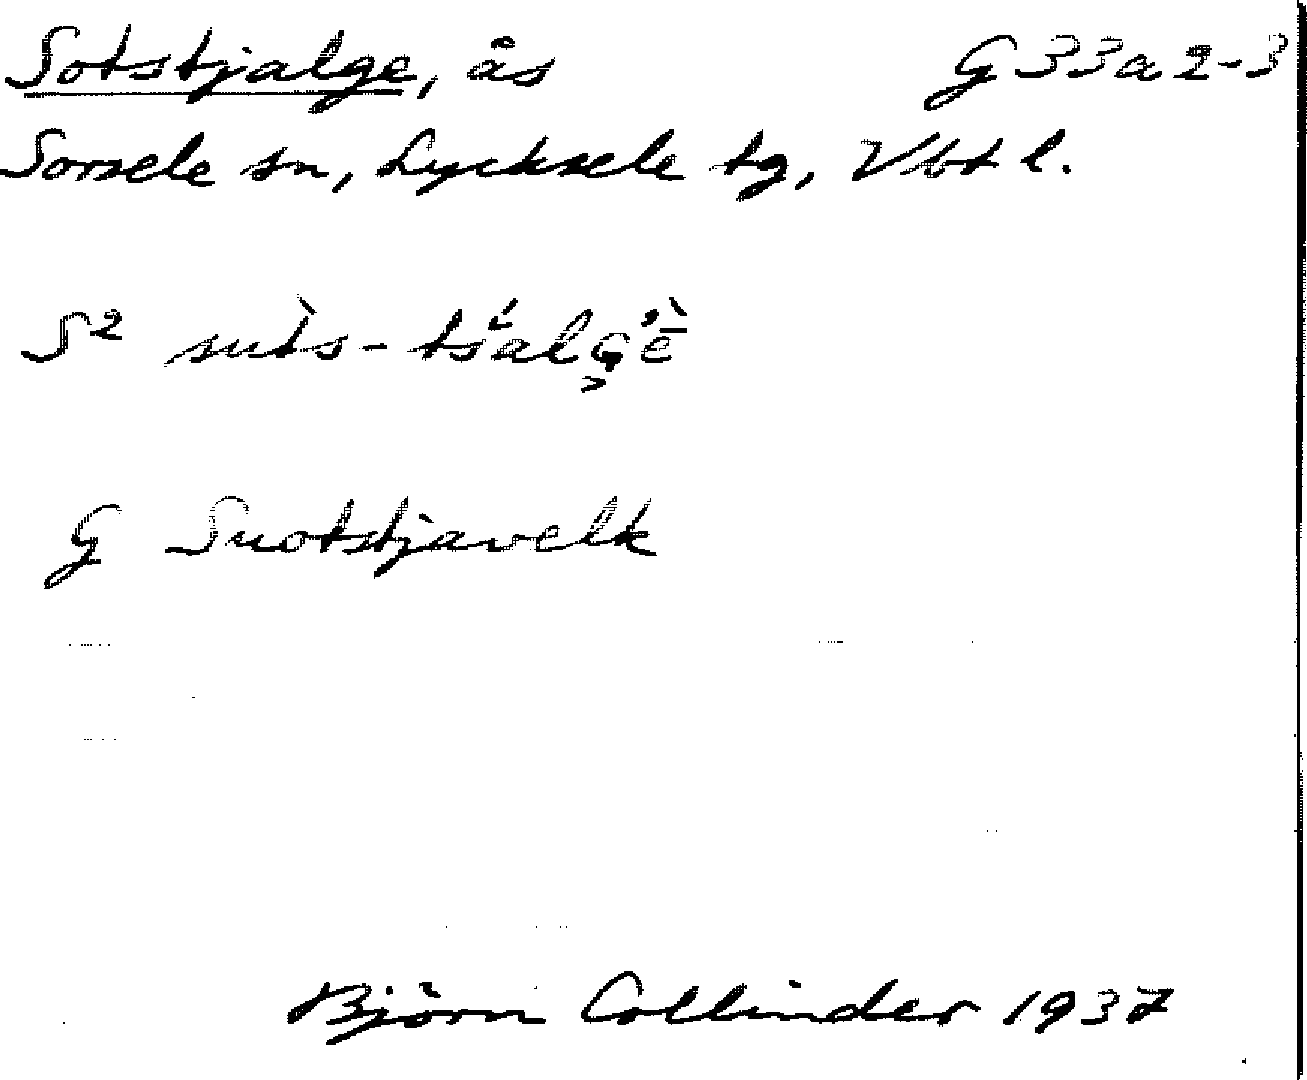 Sotstjalge, ås G 33a 2-3
Sorsele sn, Lycksele tg, Vbt l.
S² sùts-tśálɢ̜'ḕ
G Suotstjavelk
Björn Collinder 1937